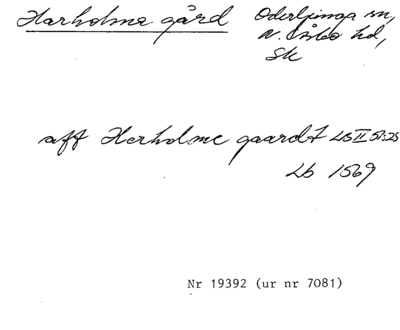 Harholma gård Oderljunga sn,
N. Åsbo hd,
Sk
aff Herholme gaardt LB II 57:25
Lb 1569
Nr 19392 (ur nr 7081)